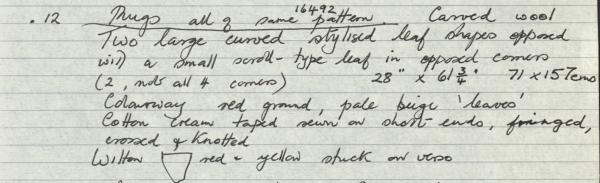 .12 Rugs all of same pattern. 16492 Carved wool
Two large curved stylised leaf shapes opposed
with a small scroll-type leaf in opposed corners
(2, not all 4 corners) 28" x 61 3/4" 71 x 157cms
Colourway red ground, pale beige 'leaves'
Cotton cream taped sewn on short-ends, fringed,
crossed & Knotted
Wilton red & yellow stuck on verso